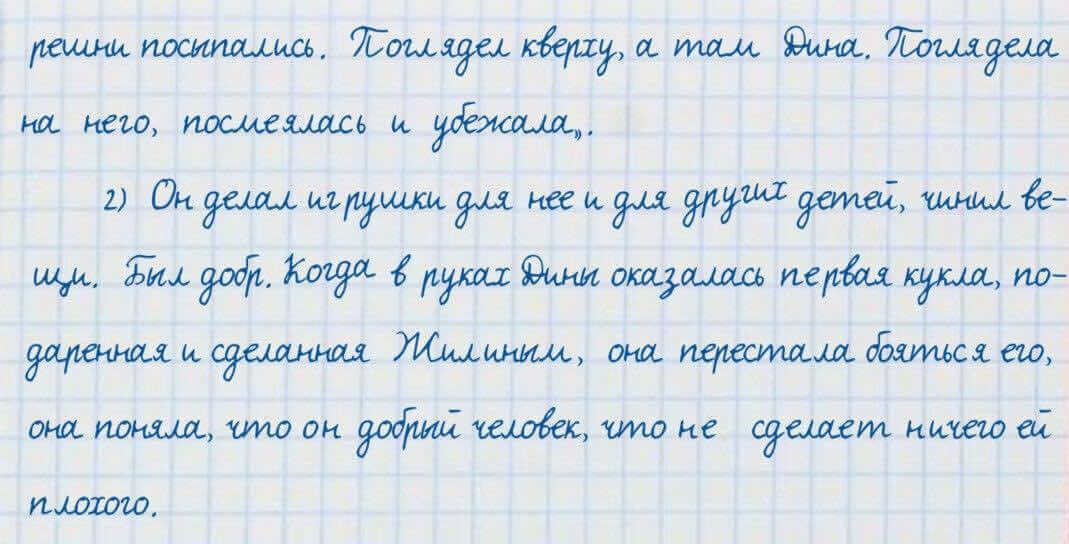 решни посыпались. Поглядел кверху, а там Дина. Поглядела
на него, посмеялась и убежала„.
2) Он делал игрушки для нее и для других детей, чинил ве-
щи. Был добр. Когда в руках Дины оказалась первая кукла, по-
даренная и сделанная Жилиным, она перестала бояться его,
она поняла, что он добрый человек, что не сделает ничего ей
плохого.